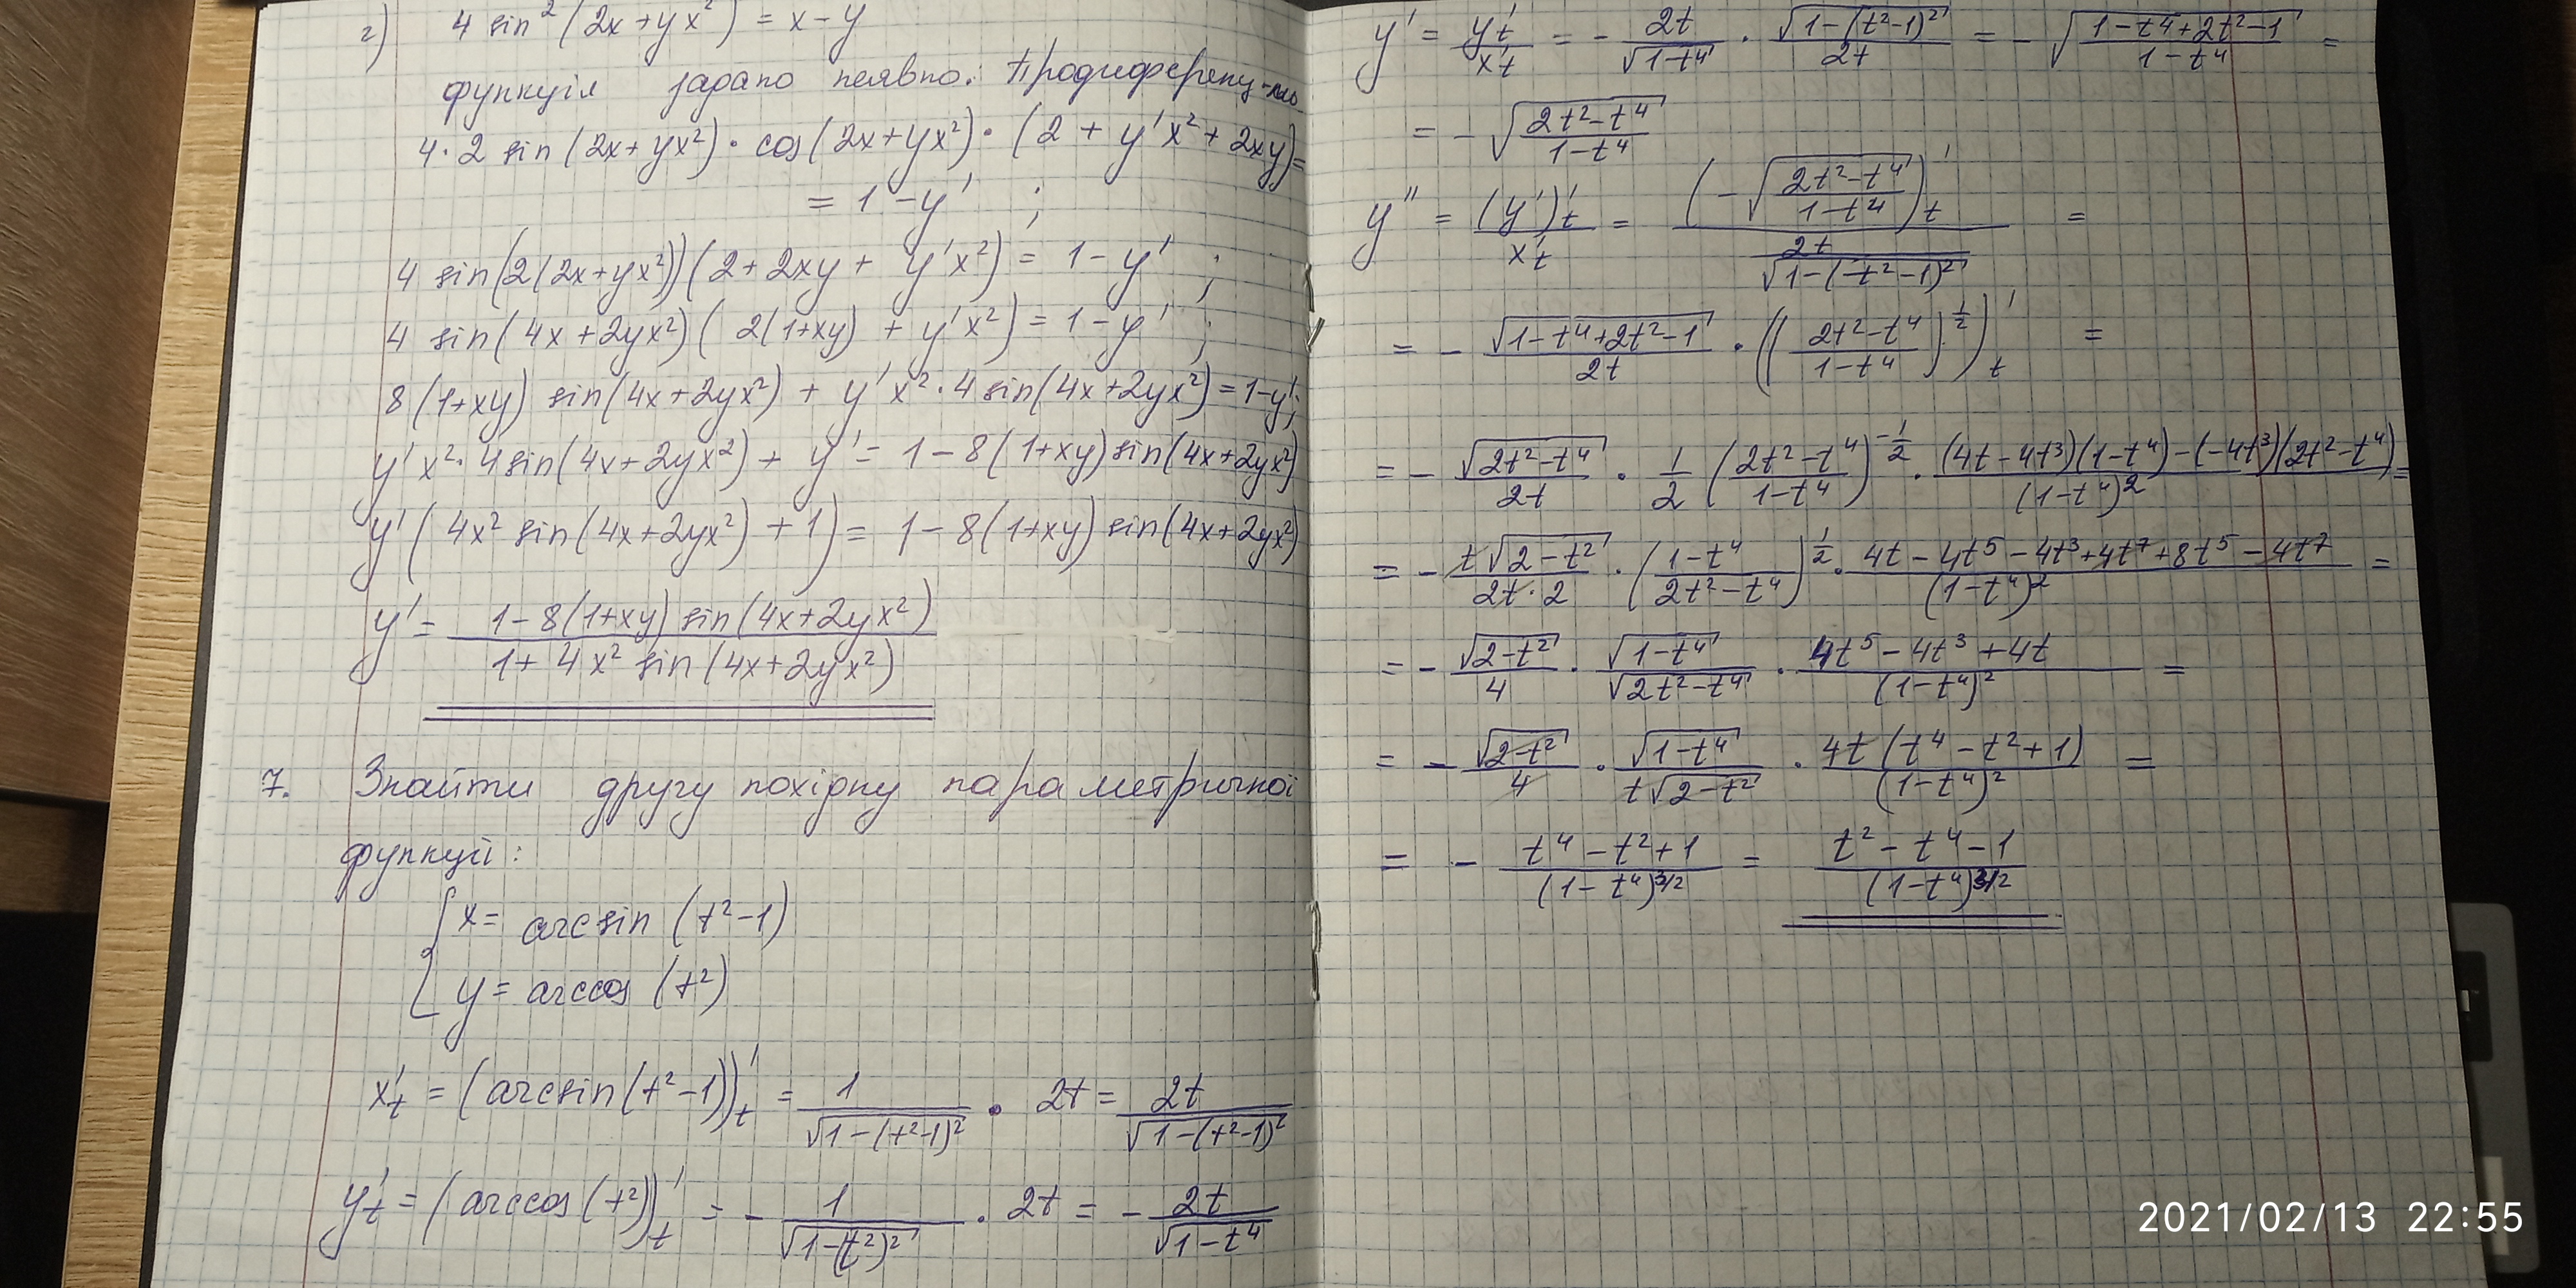 г) 4 sin²(2x+yx²) = x-y
функція задано неявно. Продиференц-ємо
4·2 sin(2x+yx²)·cos(2x+yx²)·(2+y'x²+2xy)=
= 1-y' ;
4 sin(2(2x+yx²))(2+2xy+y'x²) = 1-y' ;
4 sin(4x+2yx²)(2(1+xy)+y'x²) = 1-y' ;
8(1+xy) sin(4x+2yx²) + y'x²·4 sin(4x+2yx²) = 1-y';
y'x²·4sin(4x+2yx²) + y' = 1-8(1+xy)sin(4x+2yx²)
y'(4x² sin(4x+2yx²)+1) = 1-8(1+xy)sin(4x+2yx²)
y' = (1-8(1+xy) sin(4x+2yx²))/(1+4x² sin(4x+2yx²))
7. Знайти другу похідну параметричної
функції:
{x = arcsin(t²-1)
{y = arccos(t²)
x't = (arcsin(t²-1))'t = 1/√(1-(t²-1)²) · 2t = 2t/√(1-(t²-1)²)
y't = (arccos(t²))'t = - 1/√(1-(t²)²) · 2t = - 2t/√(1-t⁴)
y' = y't/x't = - 2t/√(1-t⁴) · √(1-(t²-1)²)/2t = - √((1-t⁴+2t²-1)/(1-t⁴)) =
= - √((2t²-t⁴)/(1-t⁴))
y'' = (y')'t/x't = (-√((2t²-t⁴)/(1-t⁴)))'t/(2t/√(1-(t²-1)²)) =
= - √(1-t⁴+2t²-1)/2t · (((2t²-t⁴)/(1-t⁴))^(1/2))'t =
= - √(2t²-t⁴)/2t · 1/2 ((2t²-t⁴)/(1-t⁴))^(-1/2) · ((4t-4t³)(1-t⁴)-(-4t³)(2t²-t⁴))/(1-t⁴)² =
= - t√(2-t²)/(2t·2) · ((1-t⁴)/(2t²-t⁴))^(1/2) · (4t-4t⁵-4t³+4t⁷+8t⁵-4t⁷)/(1-t⁴)² =
= - √(2-t²)/4 · √(1-t⁴)/√(2t²-t⁴) · (4t⁵-4t³+4t)/(1-t⁴)² =
= - √(2-t²)/4 · √(1-t⁴)/(t√(2-t²)) · 4t(t⁴-t²+1)/(1-t⁴)² =
= - (t⁴-t²+1)/(1-t⁴)^(3/2) = (t²-t⁴-1)/(1-t⁴)^(3/2)
2021/02/13 22:55